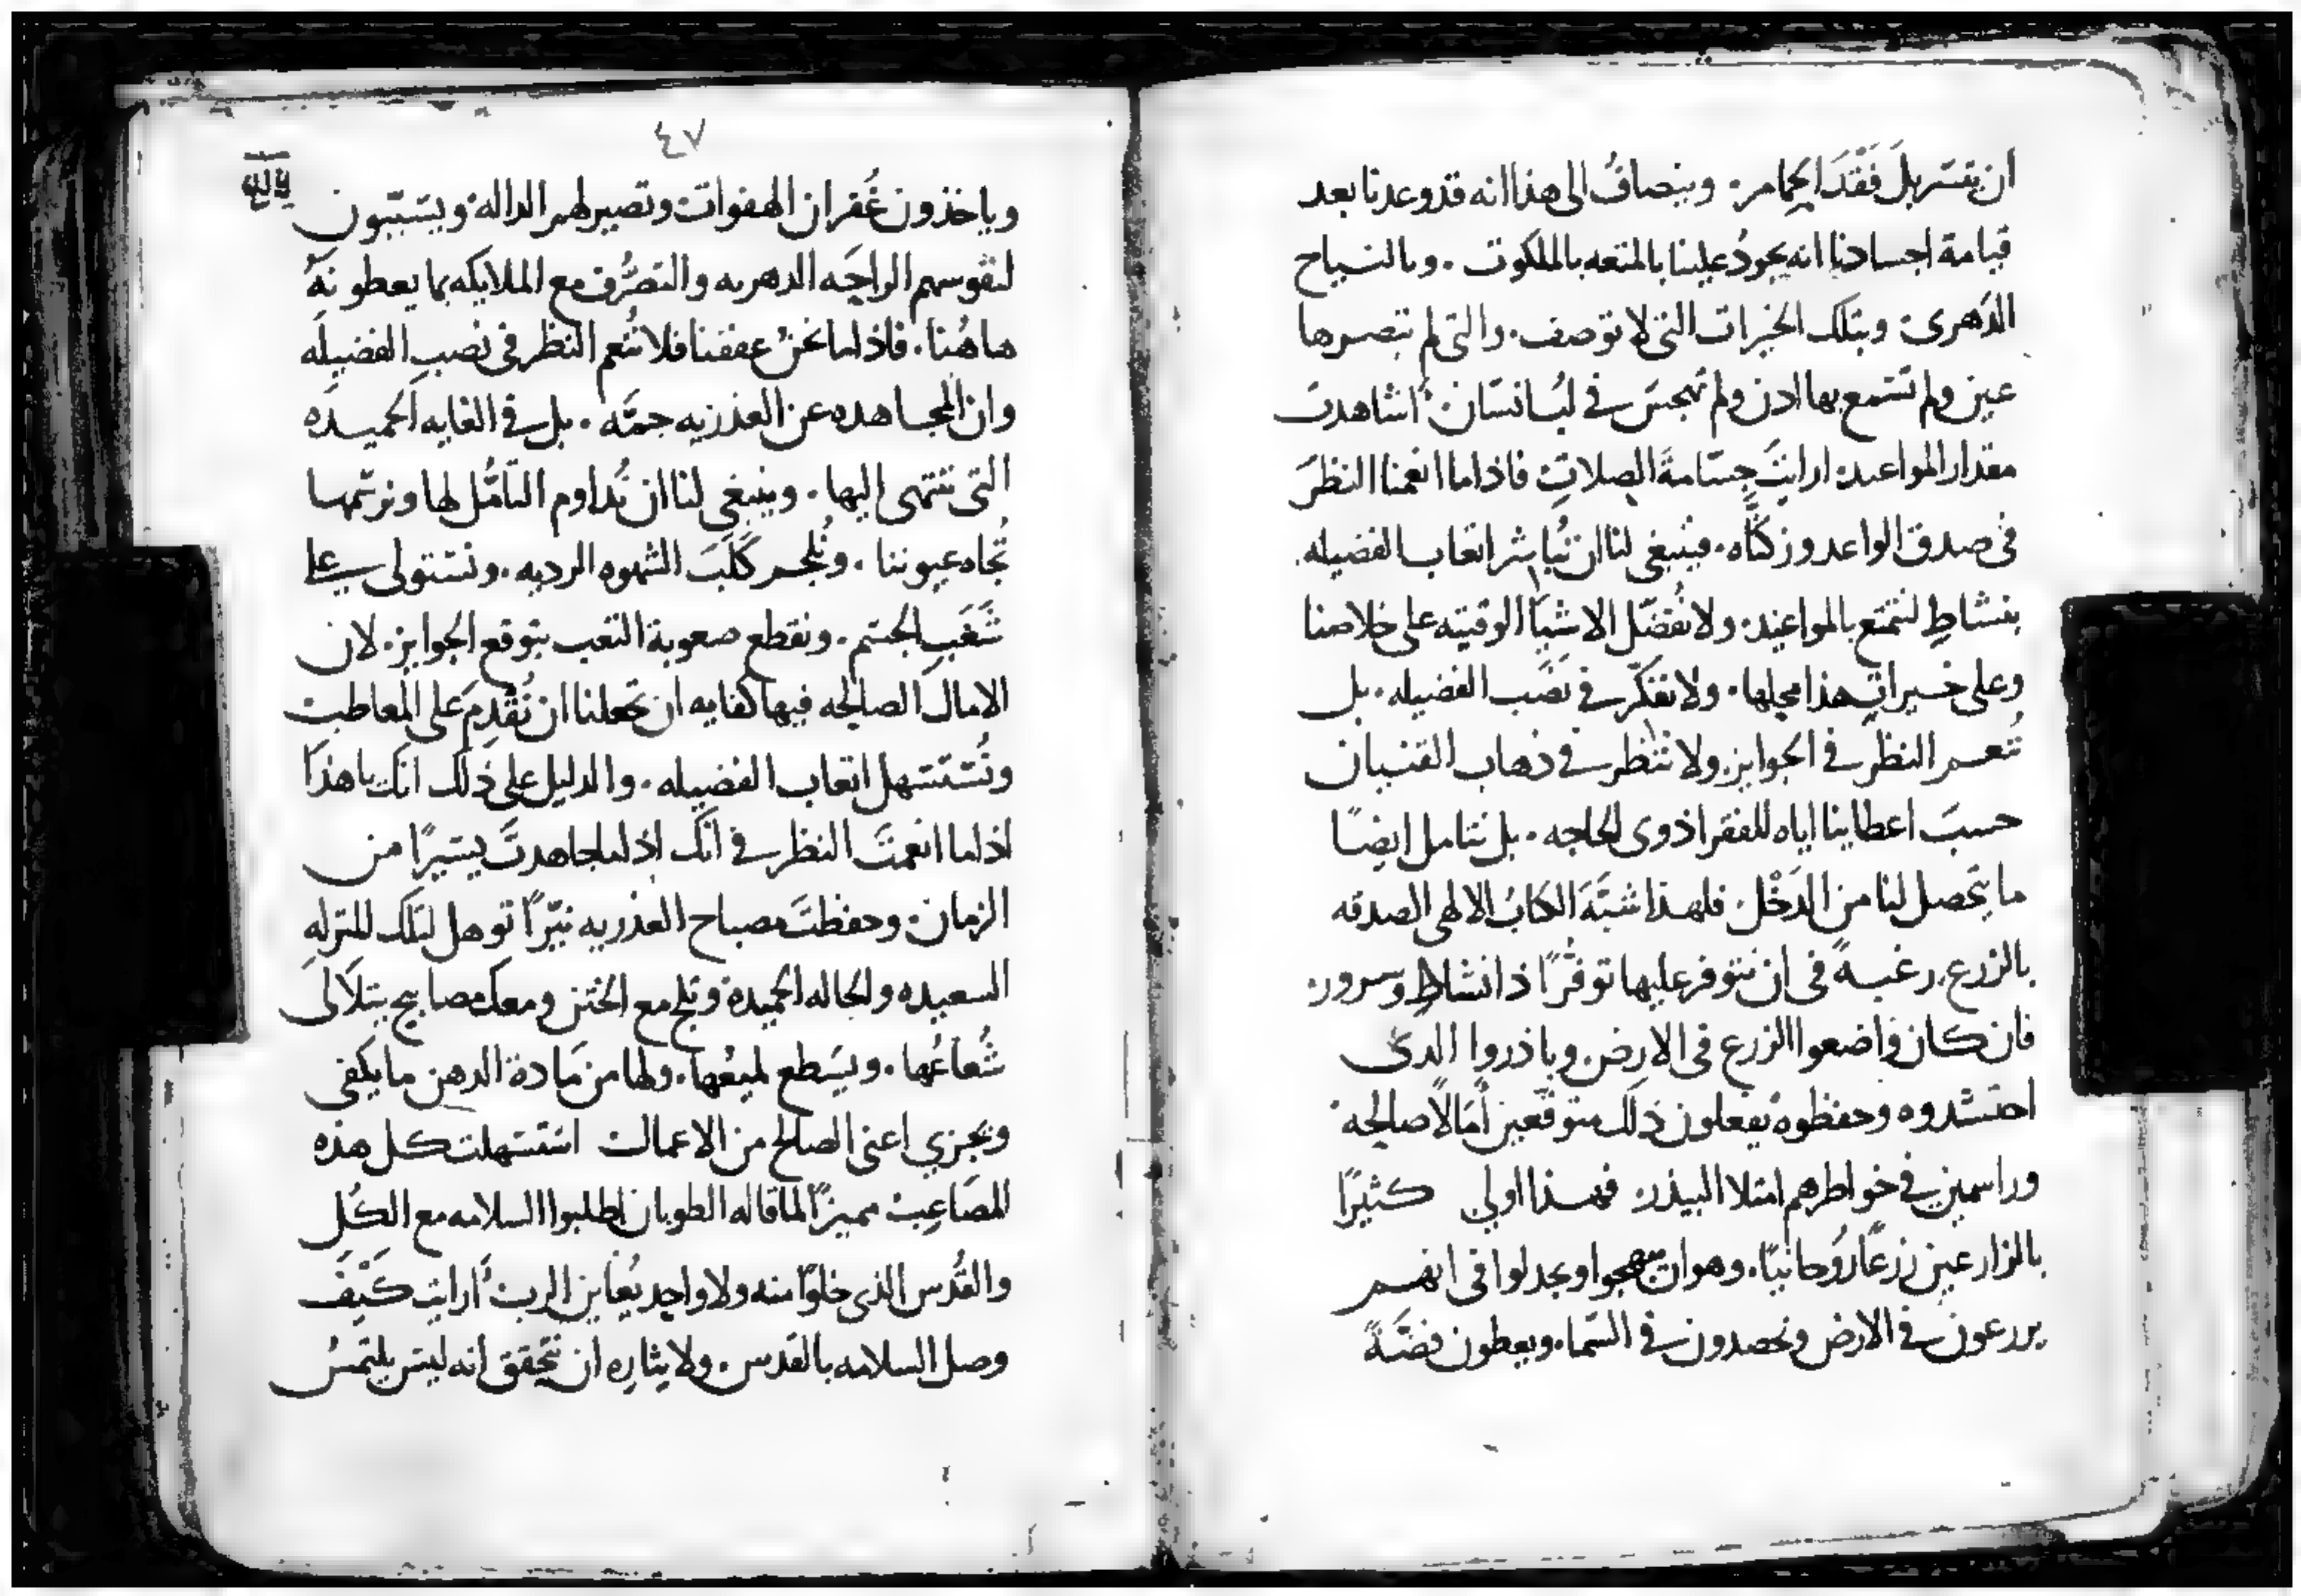 ان نتسربل فَقْدَ الحِمام. وينضافُ الى هذا انه قد وعدنا بعد
قيامة اجسادنا انه يجودُ علينا بالمتعه بالملكوت. وبالنياح
الدَهرى وبتلك الخيرات التى لا توصف. والتى لم تبصرها
عين ولم تسمع بها اذن ولم تهجس فى لُب انسَان. اشاهدت
مقدار المواعيد ارايتَ جسَامةَ الصلاتِ فاذا ما انعمنا النظرَ
فى صدق الواعد وزكَّاه. فينبغى لنا ان نُباشر اتعاب الفضيله.
بنشاطٍ لنتمتع بالمواعيد ولا نُفضّل الاشيا الوقتيه على خلاصنا
وعلى خيراتٍ هذا محلها. ولا نفكّر فى نصَب الفضيله. بل
نُنعم النظر فى الجوايز. ولا ننظر فى ذهاب القنيان
حسبَ اعطاينا اياه للفقرا ذوى الحاجه. بل نتامل ايضًا
ما يتحصل لنا من الدَخْل. فلهذا شبَّهَ الكتابُ الالهى الصدقه
بالزرع. رغبةً فى ان نتوفر عليها توفُّرًا ذا نشاطٍ وسرور
فان كان واضعوا الزرع فى الارض. وباذروا الذى
احتشدوه وحفظوه يفعلون ذلك متوقعين أمالًا صالحة
وراسمين فى خواطرهم امتلا البيدر فهذا اولي كثيرًا
بالزارعين زرعًا رُوحانيًا. وهو ان يبهجوا ويجدلوا فى انهم
يزرعون فى الارض ويحصدون فى السَما. ويعطون فضَةً
٤٧
ياله
وياخذون غُفران الهفوات وتصير لهم الدالة ويسَببّون
لنفوسهم الراحَه الدهريه والتصَرُّف مع الملايكه بما يعطونَهُ
هاهُنا. فاذا ما نحنُ عففنا فلا نُنعم النظر فى نصب الفضيله
وان المجاهده عن العذريه جمَّه. بل فى الغايه الحميدَه
التى تنتهى اليها. وينبغى لنا ان نُداوم التَامُّل لها ونرسّمها
تُجاه عيوننا. ونُلجم كلَبَ الشهوه الرديه. ونستولى على
شَغَبِ الجسَم. ونقطع صعوبة التعب بتوقع الجوايز. لان
الامال الصالحه فيها كفايه ان تجعلنا ان نُقْدِمَ على المعاطب
ونُستسَهل اتعاب الفضيله. والدليل على ذلك انك يا هذا
اذا ما انعمتَ النظر فى انك اذا ما جاهدتَ يسَيرًا من
الزمان. وحفظتَ مصباح العذريه نيّرًا توهل لتلك المنزله
السعيده والحاله الحميدة وتلج مع الختن ومعك مصابيح يتلالى
شُعاعُها. ويسَطع لميعُها. ولها من مَادة الدهن ما يكفى
ويجزي اعنى الصالح من الاعمال استسَهلت كل هذه
المصَاعِبْ مميزًا لما قاله الطوبان اطلبوا السلامه مع الكُل
والقُدس الذى خلوًا منه ولا واحد يُعاين الرب أرايت كَيْفَ
وصل السلامه بالقدس. ولايثاره ان نتحقق انه ليس يلتمسُ